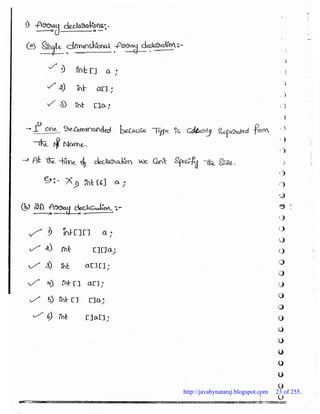 1) Array declarations:-
(a) Single dimensional Array declaration:-
✓ 1) int[] a ;
✓ 2) int a[] ;
✓ 3) int []a ;
→ 1st one recommended because Type is clearly separated from
the Name.
→ At the time of declaration we Can't Specify the Size.
Eg:- X 1) int[6] a ;
(b) 2D Array declaration :-
✓ 1) int[][] a ;
✓ 2) int [][]a;
✓ 3) int a[][];
✓ 4) int[] a[];
✓ 5) int[] []a;
✓ 6) int []a[];
http://javabynataraj.blogspot.com 23 of 255.